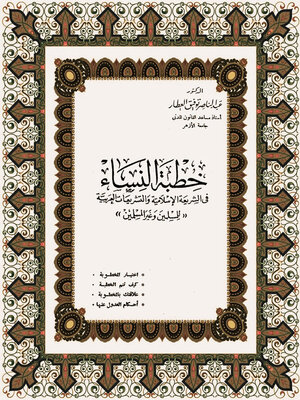 الدكتور
عبد الناصر توفيق العطار
أستاذ مساعد القانون المدني
جامعة الأزهر
خطبة النساء
في الشريعة الإسلامية والتشريعات العربية
«للمسلمين وغير المسلمين»
* اختيار المخطوبة
* كيف تتم الخطبة
* علاقتك بالمخطوبة
* أحكام العدول عنها